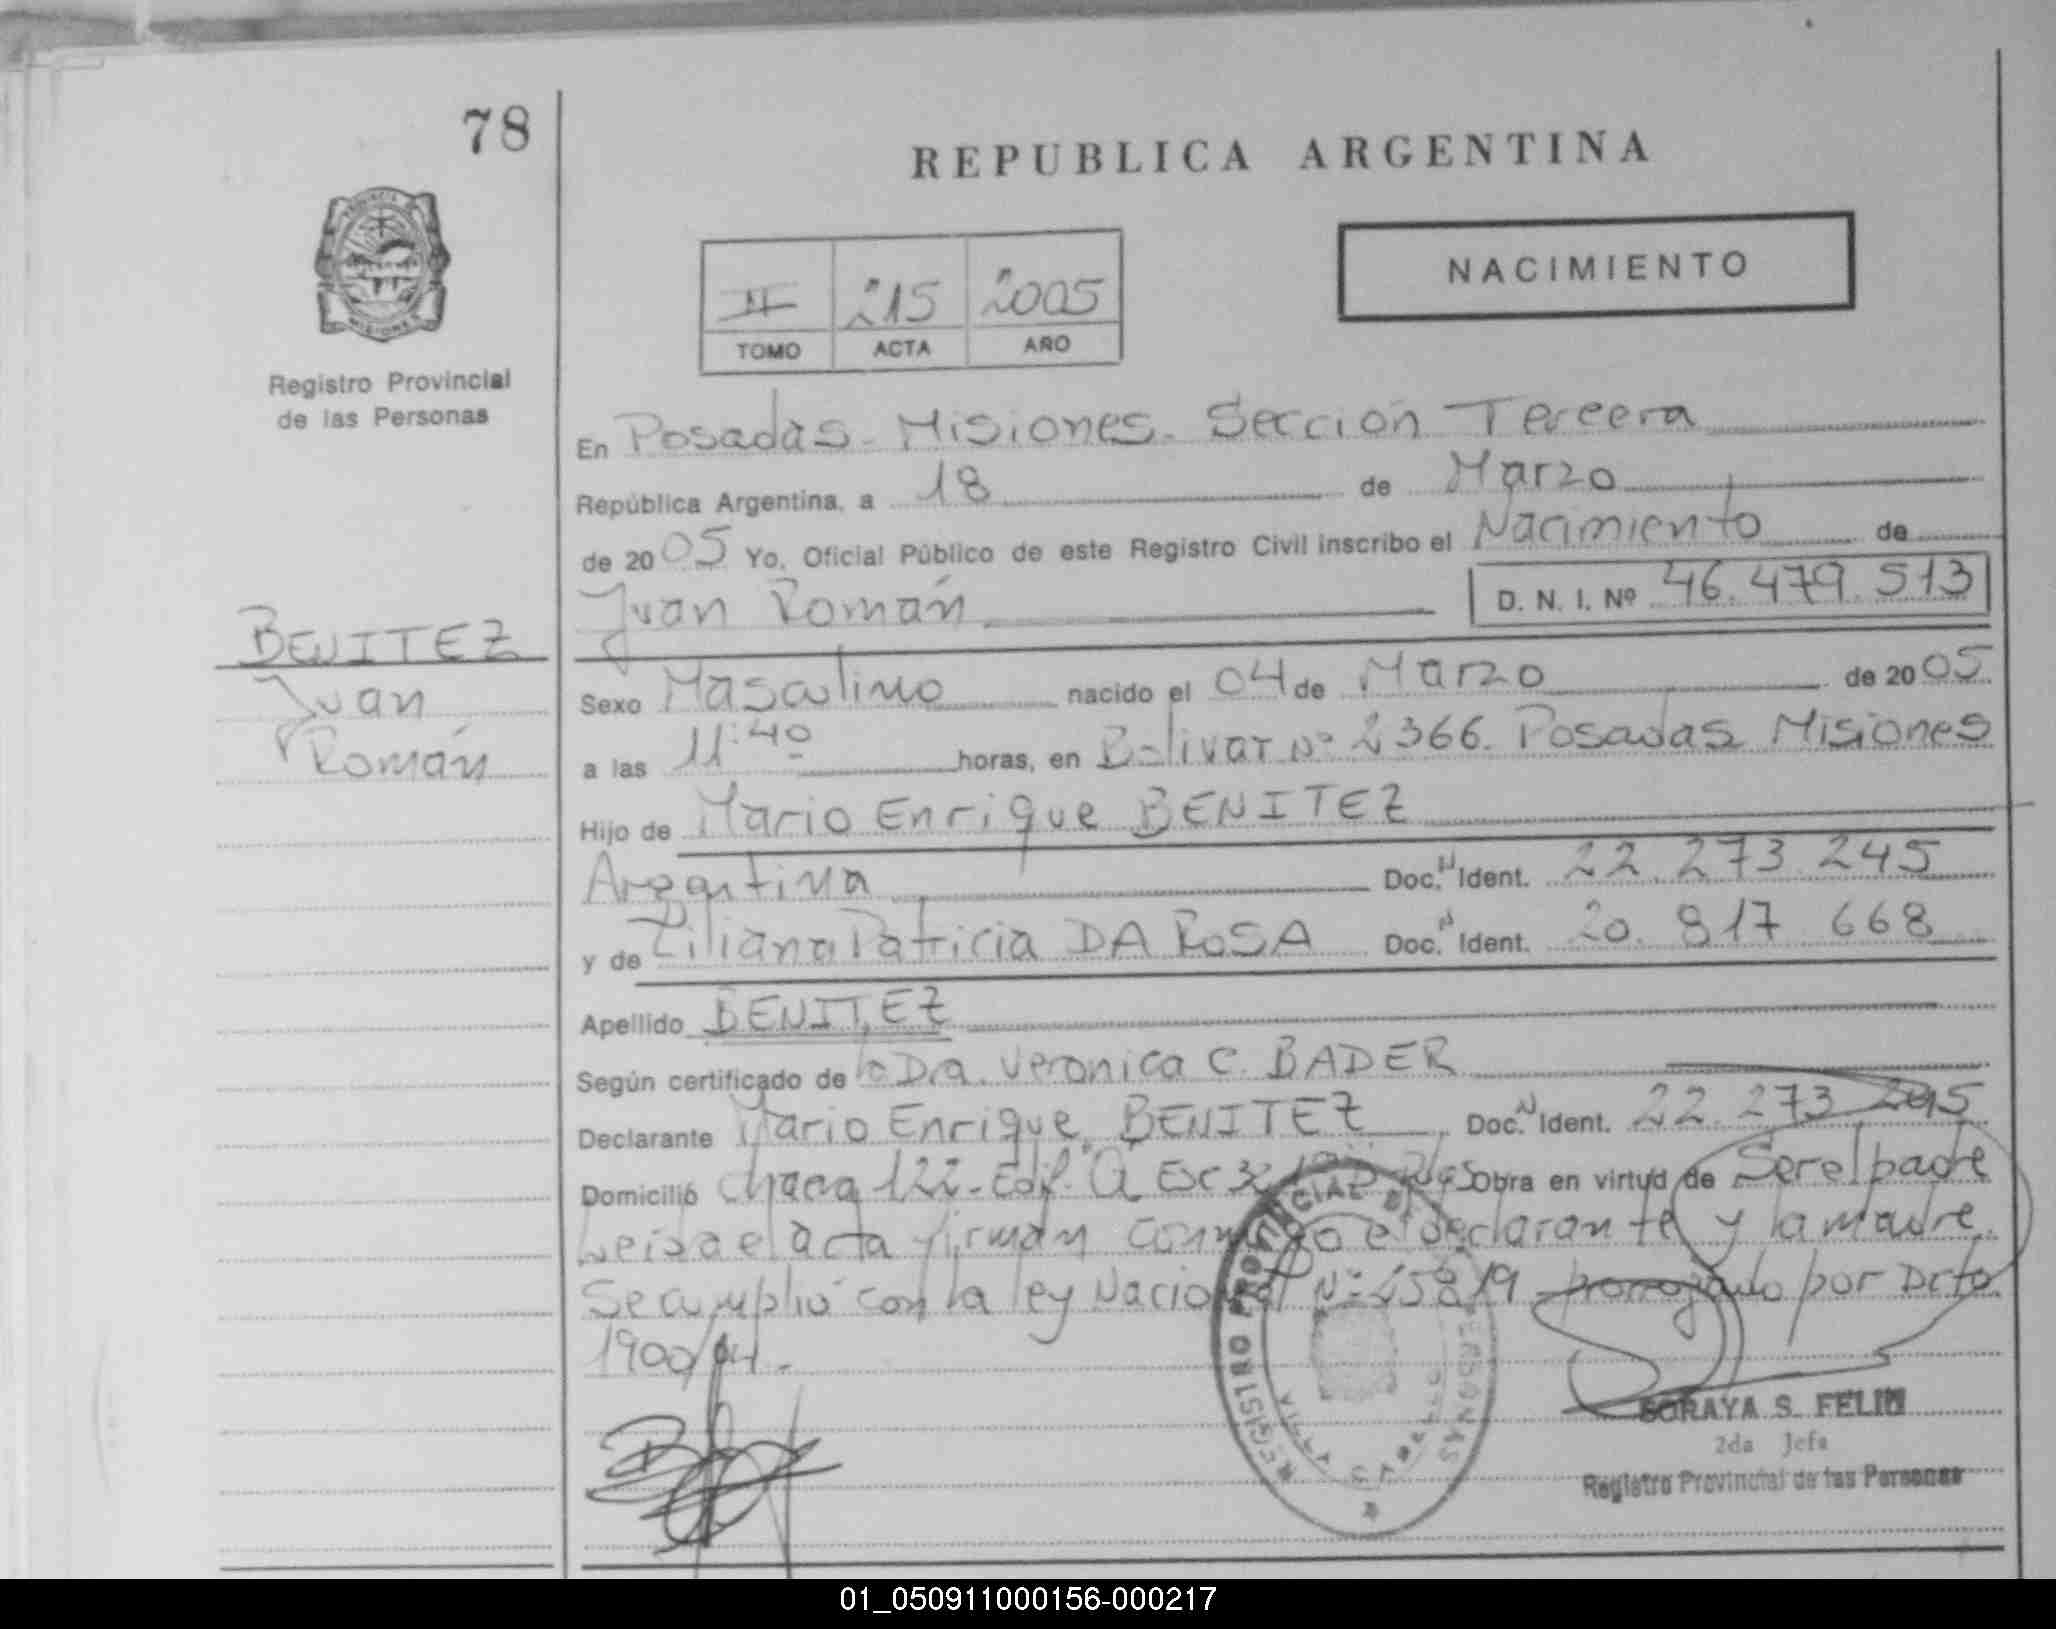 78
REPUBLICA ARGENTINA
PROVINCIA DE
MISIONES
Registro Provincial
de las Personas
NACIMIENTO
II 215 2005
TOMO ACTA AÑO
En Posadas - Misiones - Sección Tercera
República Argentina, a 18 de Marzo
de 2005 Yo, Oficial Público de este Registro Civil inscribo el Nacimiento de
Juan Román D. N. I. Nº 46.479.513
BENITEZ
Juan
Román
Sexo Masculino nacido el 04 de Marzo de 2005
a las 11:40 horas, en Bolivar Nº 2366. Posadas Misiones
Hijo de Mario Enrique BENITEZ
Argentina Doc. N Ident. 22.273.245
y de Liliana Patricia DA ROSA Doc. N Ident. 20.817.668
Apellido BENITEZ
Según certificado de la Dra. Veronica C. BADER
Declarante Mario Enrique BENITEZ Doc. N Ident. 22.273.245
Domicilió Chacra 122 - Edif. Obra en virtud de Ser el padre
Leída el acta firman conmigo el declarante y la madre.
Se cumplió con la ley Nacional Nº 25819 prorrogado por Dcto.
1900/04.-
REGISTRO PROVINCIAL DE LAS PERSONAS
SORAYA S. FELIU
2da Jefa
Registro Provincial de las Personas
01_050911000156-000217